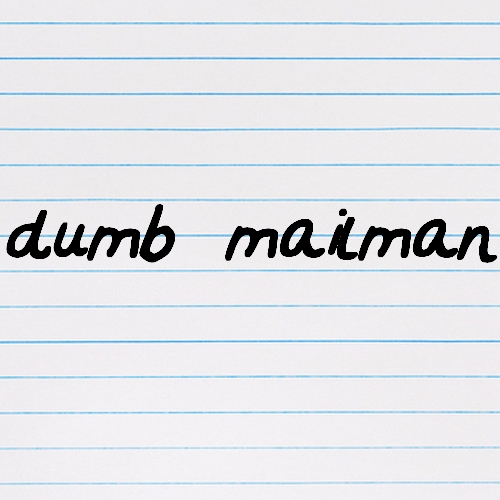 dumb mailman